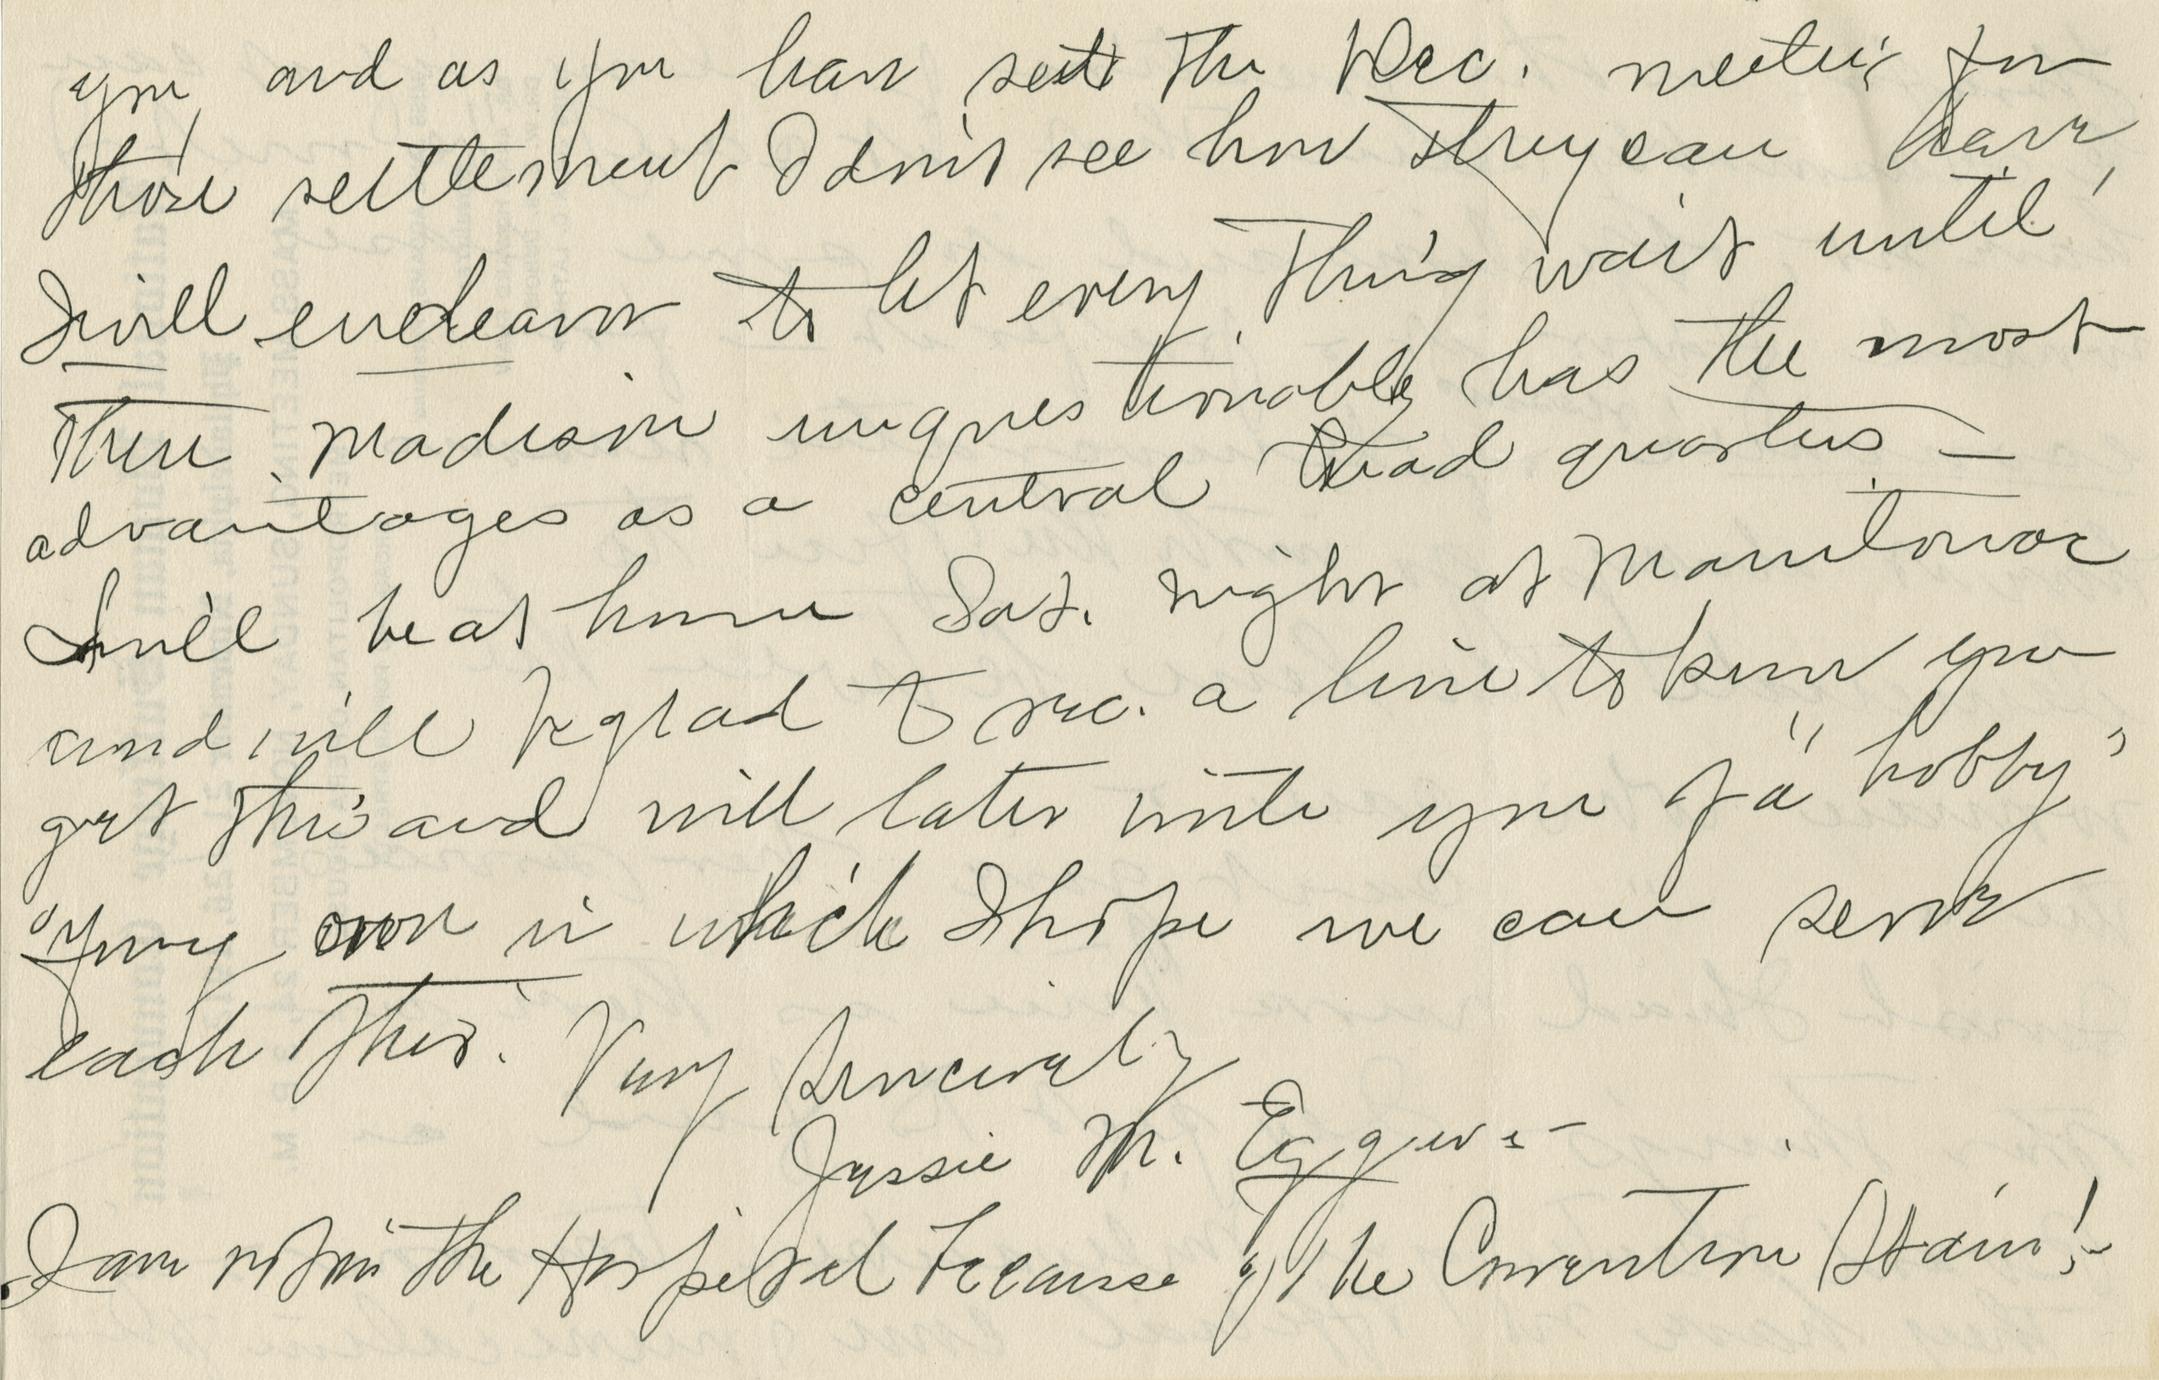 you and as you have set the Dec. meeting for
those settlement I don't see how they can have,
I will endeavor to let every thing wait until
then Madison unquestionably has the most
advantages as a central Head quarters —
I will be at home Sat. night at Manitowoc
and will be glad to rec. a line to know you
get this and will later write you of a "hobby"
of my own in which I hope we can serve
each other. Very Sincerely
Jessie M. Eggers —
I am not in the Hospital because of the Convention Strain! —